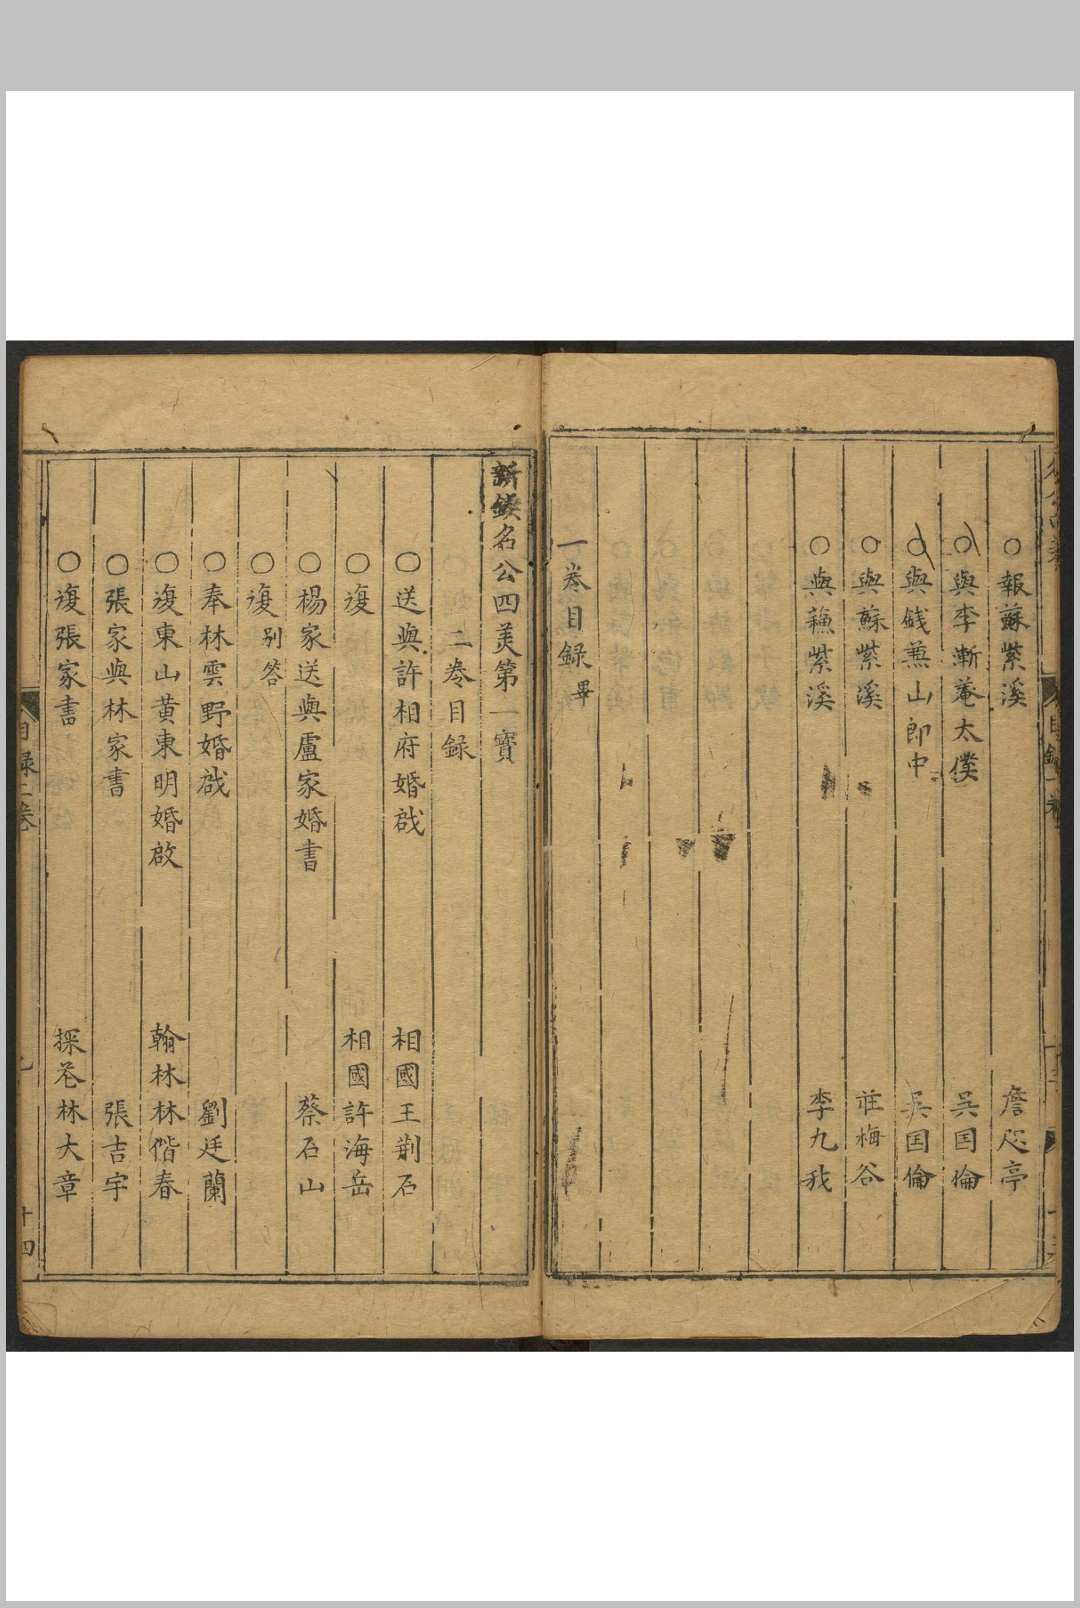 ○報蘇紫溪 詹咫亭
○與李漸菴太僕 吳国倫
○與錢蕪山郎中 吳国倫
○與蘇紫溪 莊梅谷
○與蘓紫溪 李九我
一卷目録畢
新鋟名公四美第一寳
二卷目録
○送與許相府婚啟 相國王荆石
○復 相國許海岳
○楊家送與盧家婚書 蔡石山
○復別答
○奉林雲野婚啟 劉廷蘭
○復東山黄東明婚啟 翰林林偕春
○張家與林家書 張吉宇
○復張家書 探花林大章
目録二卷
十四